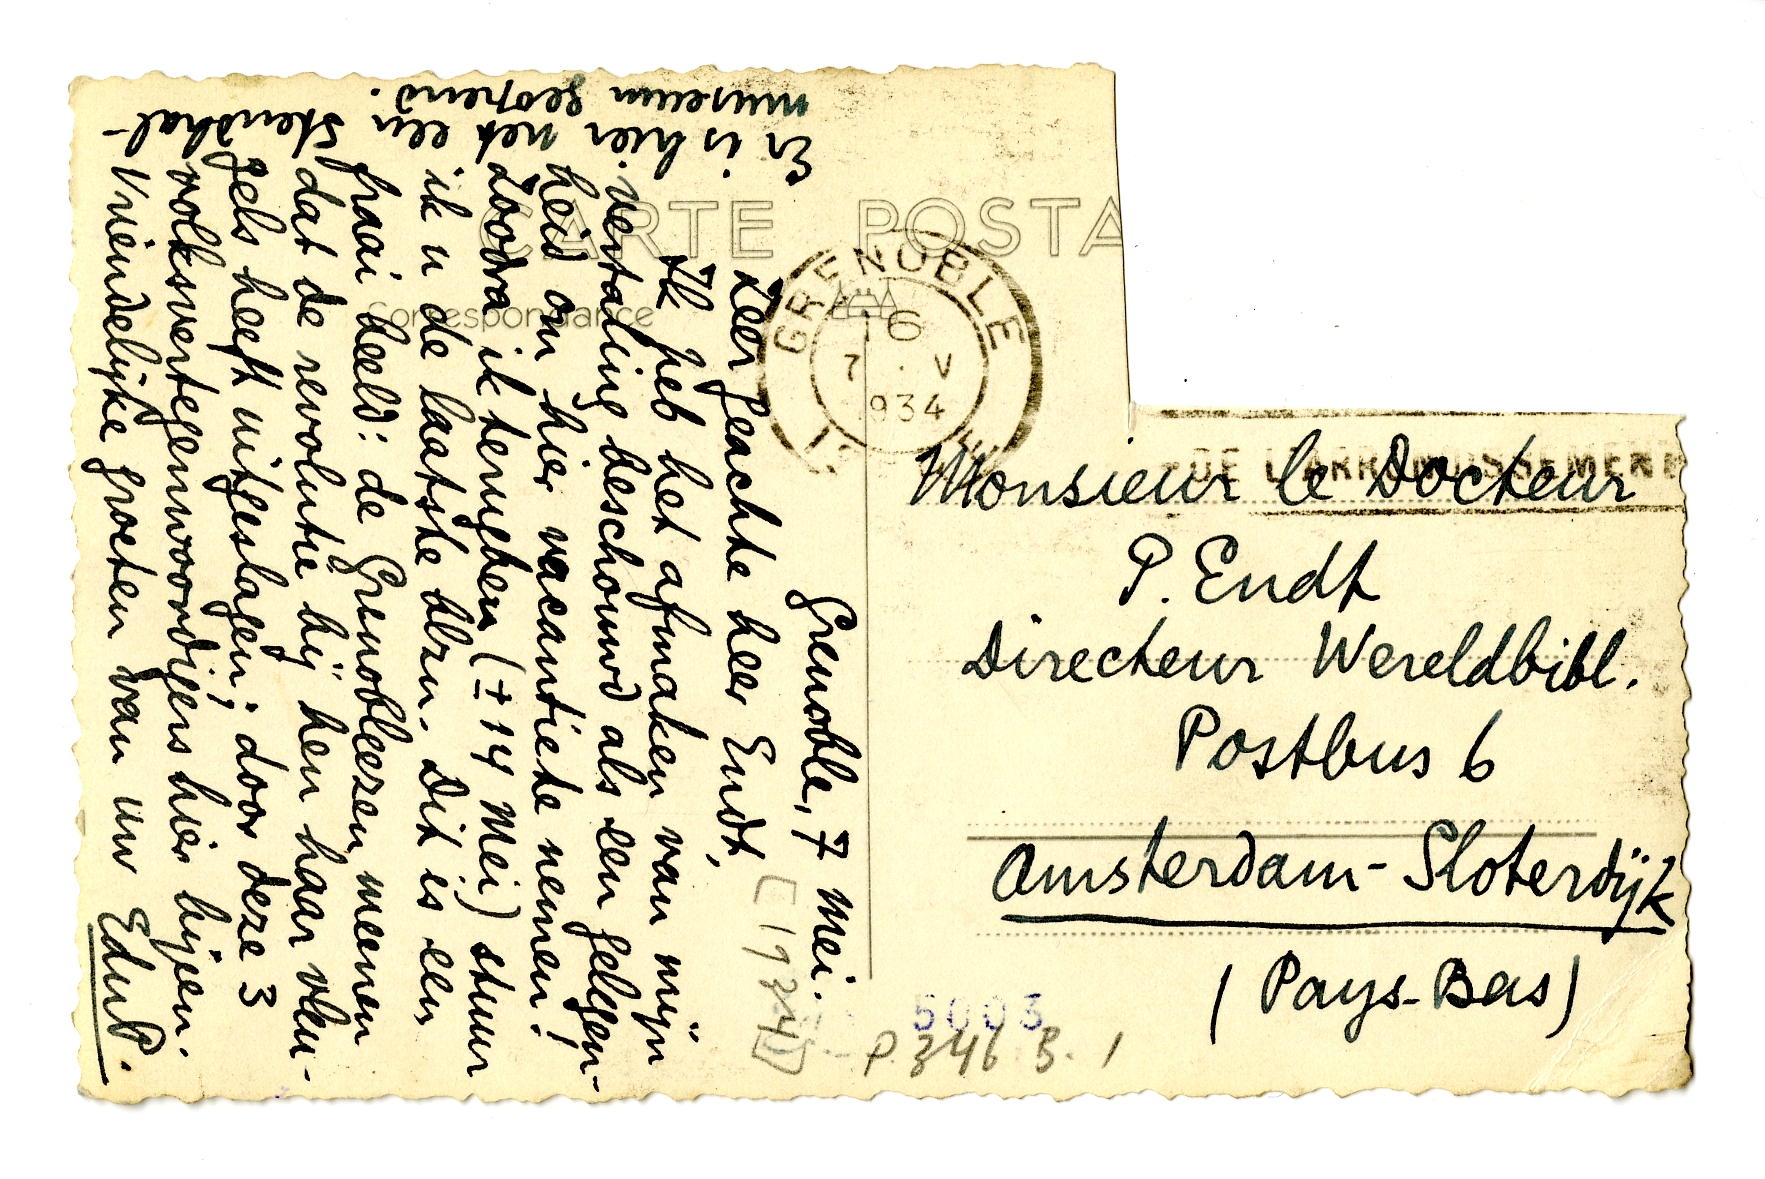 CARTE POSTA
Correspondance
GRENOBLE
6
7 . V
1934
DE L'ARRONDISSEMENT
Grenoble, 7 Mei.
Zeer geachte heer Endt,
Ik heb het afmaken van mijn
vertaling beschouwd als een gelegen-
heid om hier vacantie te nemen!
Zoodra ik terugben (± 14 Mei) stuur
ik u de laatste blzn. Dit is een
fraai beeld: de Grenobleezen meenen
dat de revolutie bij hen haar vleu-
gels heeft uitgeslagen; door deze 3
volksvertegenwoordigers hier bijeen.
Vriendelijke groeten van uw EduP.
Er is hier net een Stendhal-
museum geopend.
Monsieur le Docteur
P. Endt
Directeur Wereldbibl.
Postbus 6
Amsterdam-Sloterdijk
(Pays-Bas)
[1934]
5003
P 346 B. 1